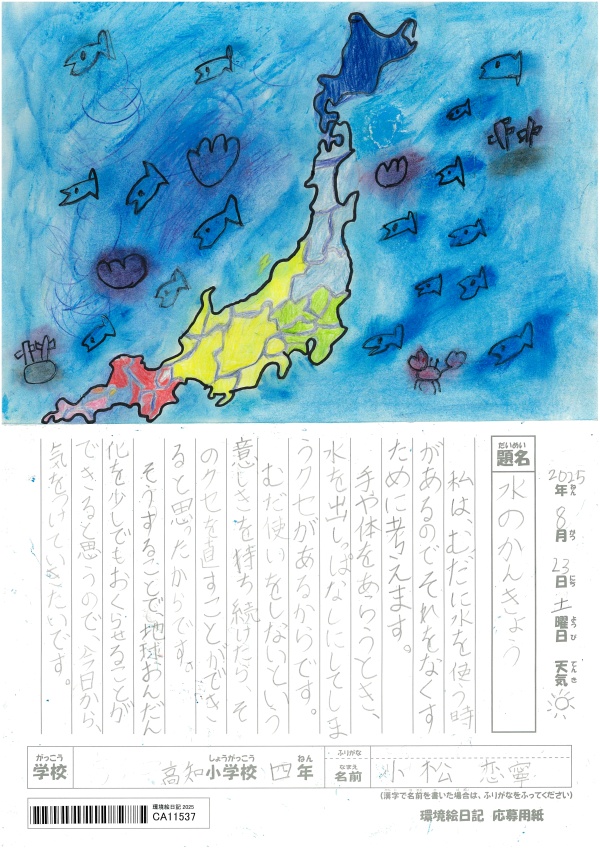 2025年ねん 8月がつ 23日にち 土曜日ようび 天気てんき
題名だいめい
水のかんきょう
私は、むだに水を使う時
があるのでそれをなくす
ために考えます。
手や体をあらうとき、
水を出しっぱなしにしてしま
うクセがあるからです。
むだ使いをしないという
意しきを持ち続けたら、そ
のクセを直すことができ
ると思ったからです。
そうすることで地球おんだん
化を少しでもおくらせることが
できると思うので、今日から、
気をつけていきたいです。
学校がっこう 高知小学校しょうがっこう 四年ねん 名前なまえ ふりがな 小松 恋寧
(漢字で名前を書いた場合は、ふりがなをふってください)
環境絵日記 2025
CA11537
環境絵日記 応募用紙